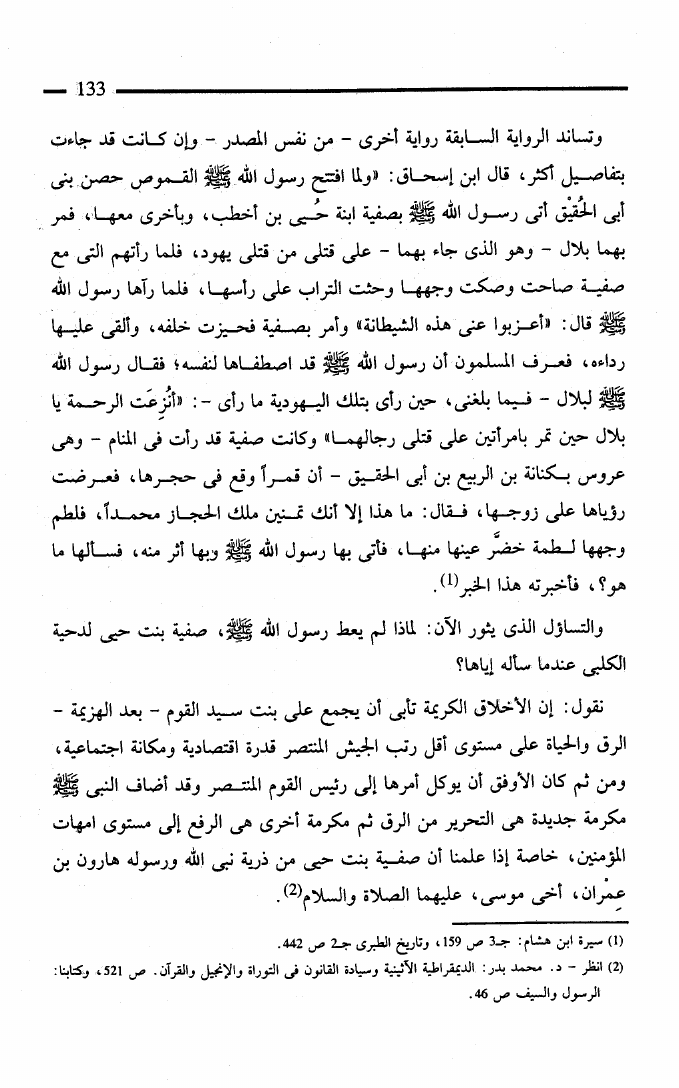 133
وتساند الرواية السابقة رواية أخرى - من نفس المصدر - وإن كانت قد جاءت
بتفاصيل أكثر، قال ابن إسحاق: «ولما افتتح رسول الله ﷺ القموص حصن بنى
أبى الحُقيْق أتى رسول الله ﷺ بصفية ابنة حُيى بن أخطب، وبأخرى معها، فمر
بهما بلال - وهو الذى جاء بهما - على قتلى من قتلى يهود، فلما رأتهم التى مع
صفية صاحت وصكت وجهها وحثت التراب على رأسها، فلما رآها رسول الله
ﷺ قال: «أعزبوا عنى هذه الشيطانة» وأمر بصفية فحيزت خلفه، وألقى عليها
رداءه، فعرف المسلمون أن رسول الله ﷺ قد اصطفاها لنفسه؛ فقال رسول الله
ﷺ لبلال - فيما بلغنى، حين رأى بتلك اليهودية ما رأى -: «أنُزِعَت الرحمة يا
بلال حين تمر بامرأتين على قتلى رجالهما» وكانت صفية قد رأت فى المنام - وهى
عروس بكنانة بن الربيع بن أبى الحقيق - أن قمراً وقع فى حجرها، فعرضت
رؤياها على زوجها، فقال: ما هذا إلا أنك تمنين ملك الحجاز محمداً، فلطم
وجهها لطمة خضَّر عينها منها، فأتى بها رسول الله ﷺ وبها أثر منه، فسألها ما
هو؟، فأخبرته هذا الخبر(1).
والتساؤل الذى يثور الآن: لماذا لم يعط رسول الله ﷺ، صفية بنت حيى لدحية
الكلبى عندما سأله إياها؟
نقول: إن الأخلاق الكريمة تأبى أن يجمع على بنت سيد القوم - بعد الهزيمة -
الرق والحياة على مستوى أقل رتب الجيش المنتصر قدرة اقتصادية ومكانة اجتماعية،
ومن ثم كان الأوفق أن يوكل أمرها إلى رئيس القوم المنتصر وقد أضاف النبى ﷺ
مكرمة جديدة هى التحرير من الرق ثم مكرمة أخرى هى الرفع إلى مستوى امهات
المؤمنين، خاصة إذا علمنا أن صفية بنت حيى من ذرية نبى الله ورسوله هارون بن
عِمْران، أخى موسى، عليهما الصلاة والسلام(2).
(1) سيرة ابن هشام: جـ3 ص 159، وتاريخ الطبرى جـ2 ص 442.
(2) انظر - د. محمد بدر: الديمقراطية الأثينية وسيادة القانون فى التوراة والإنجيل والقرآن. ص 521، وكتابنا:
الرسول والسيف ص 46.